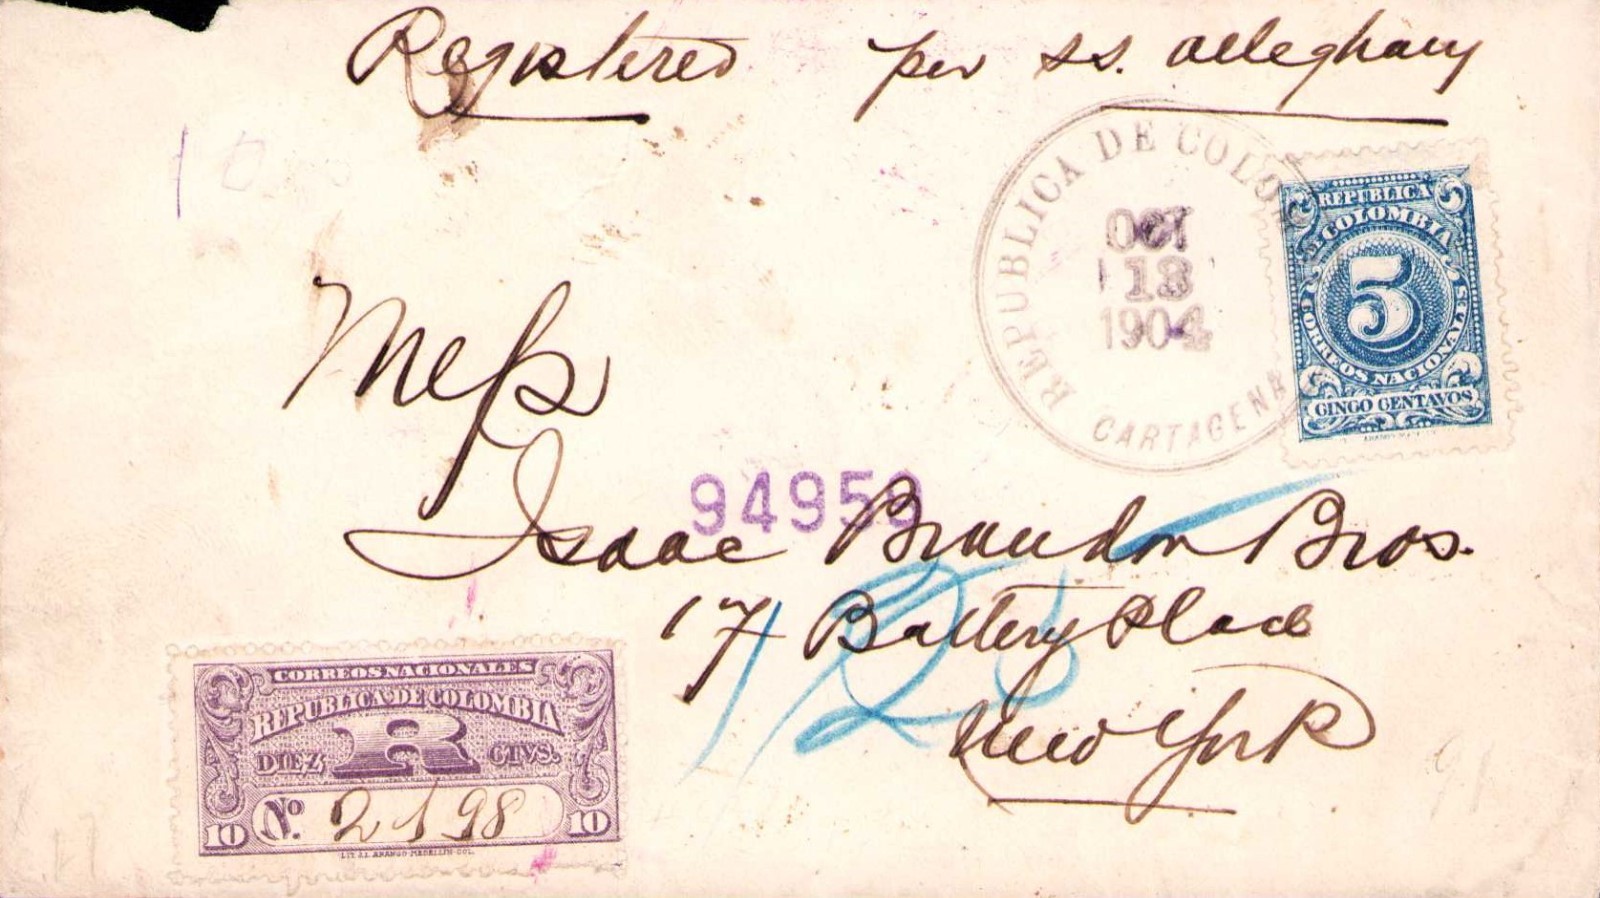 Registered per SS. Alleghany
REPUBLICA DE COLOMBIA
OCT
13
1904
CARTAGENA
REPUBLICA
DE COLOMBIA
5
CORREOS NACIONALES
CINCO CENTAVOS
Mess
94959
Isaac Brandon Bros.
17 Battery Place
New York
CORREOS NACIONALES
REPUBLICA DE COLOMBIA
DIEZ R CTVS.
No. 2198
10 10
LIT. J.L. ARANGO-MEDELLIN-COL.